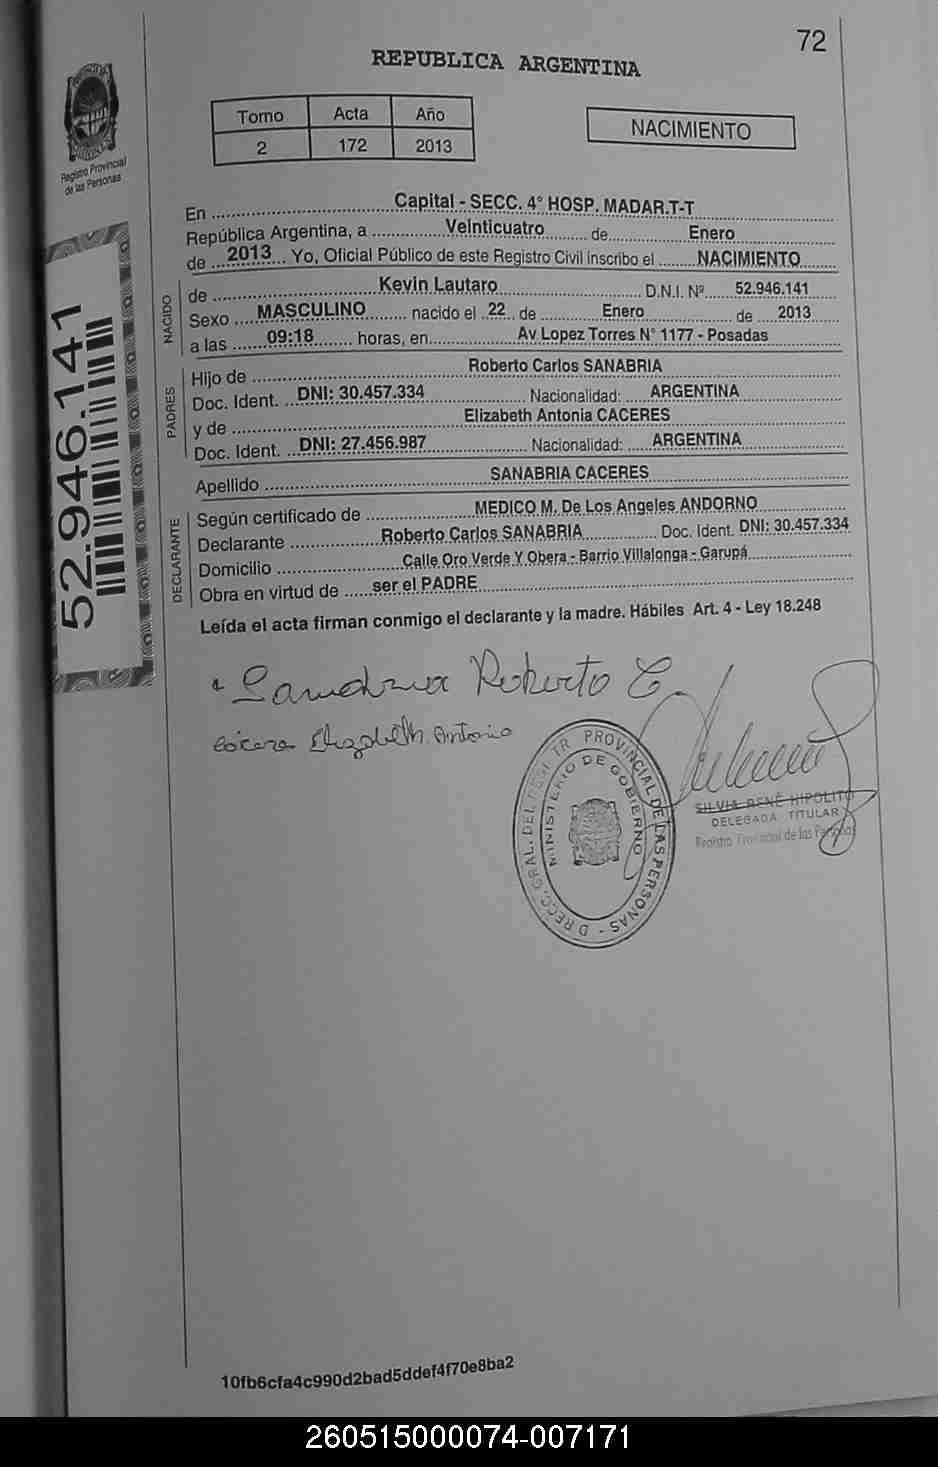 72
REPUBLICA ARGENTINA
Registro Provincial
de las Personas
Tomo Acta Año
2 172 2013
NACIMIENTO
52.946.141
En Capital - SECC. 4° HOSP. MADAR.T-T
República Argentina, a Veinticuatro de Enero
de 2013 Yo, Oficial Público de este Registro Civil inscribo el NACIMIENTO
NACIDO
de Kevin Lautaro D.N.I. Nº 52.946.141
Sexo MASCULINO nacido el 22 de Enero de 2013
a las 09:18 horas, en Av Lopez Torres N° 1177 - Posadas
PADRES
Hijo de Roberto Carlos SANABRIA
Doc. Ident. DNI: 30.457.334 Nacionalidad: ARGENTINA
y de Elizabeth Antonia CACERES
Doc. Ident. DNI: 27.456.987 Nacionalidad: ARGENTINA
Apellido SANABRIA CACERES
DECLARANTE
Según certificado de MEDICO M. De Los Angeles ANDORNO
Declarante Roberto Carlos SANABRIA Doc. Ident. DNI: 30.457.334
Domicilio Calle Oro Verde Y Obera - Barrio Villalonga - Garupá
Obra en virtud de ser el PADRE
Leída el acta firman conmigo el declarante y la madre. Hábiles Art. 4 - Ley 18.248
Sanabria Roberto C
Cáceres Elizabeth Antonia
DIRECC. GRAL. DEL REGISTR. PROVINCIAL DE LAS PERSONAS -
MINISTERIO DE GOBIERNO
SILVIA RENÉ HIPOLITO
DELEGADA TITULAR
Registro Provincial de las Personas
10fb6cfa4c990d2bad5ddef4f70e8ba2
260515000074-007171